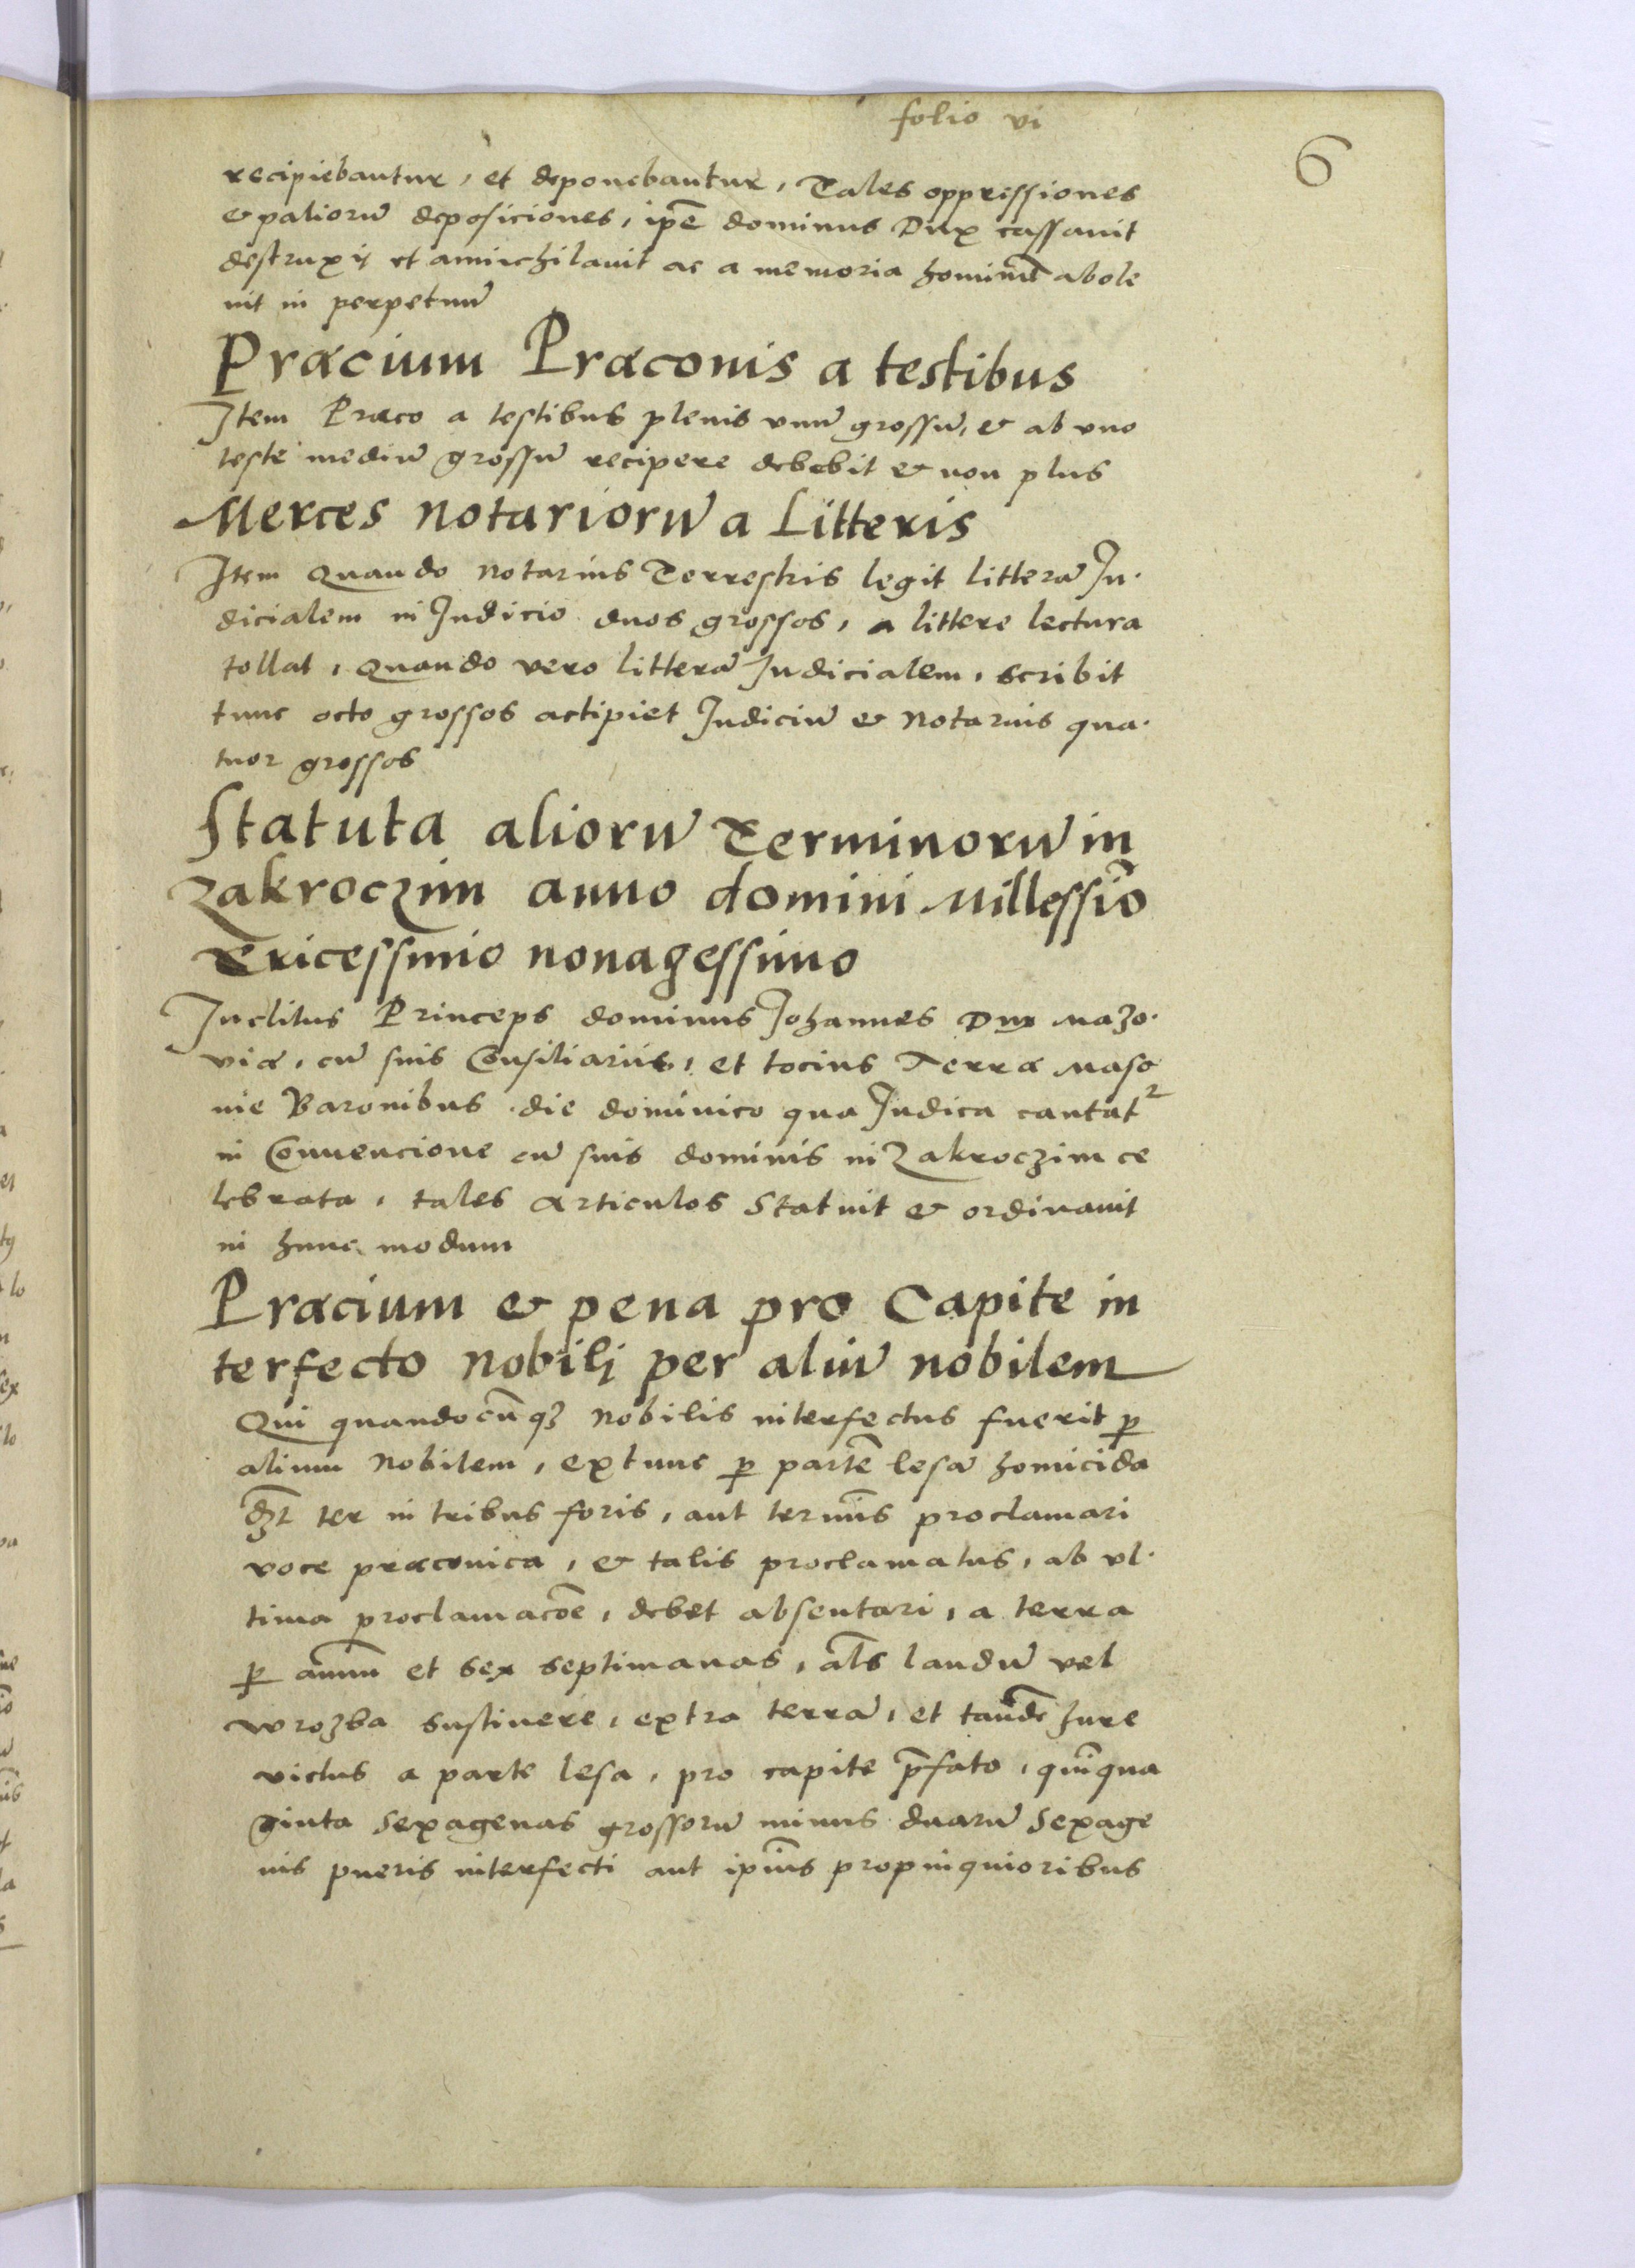 folio vi
6
recipiebantur, et deponebantur, Tales oppressiones
& paliorū deposiciones, ip̄e dominus Dux cassauit
destruxit et annichilauit ac a memoria hominū abole
uit in perpetuū
Præcium Præconis a testibus
Item Præco a testibus plenis vnū grossū, & ab vno
teste mediū grossū recipere debebit & non plus
Merces notariorū a Litteris
Item Quando notarius Terrestris legit litterā Ju-
dicialem in Judicio duos grossos, a littere lectura
tollat, Quando vero litterā Judicialem, scribit
tunc octo grossos actipiet Judiciū & Notarius qua-
tuor grossos
Statuta aliorū Terminorū in
Zakroczim anno domini Millessīo
Tricessimo nonagessimo
Inclitus Princeps dominus Johannes Dux Mazo-
viæ, cū suis Consiliariis, et tocius Terræ Maso
uie Baronibus die dominico qua Judica cantatr
in Conuencione cū suis dominis in Zakroczim ce
lebrata, tales articulos statuit & ordinauit
in hunc modum
Præcium & pena pro Capite in
terfecto nobili per aliū nobilem
Qui quandocūqȝ Nobilis interfectus fuerit ꝑ
alium Nobilem, extunc ꝑ partē lesā homicida
dȝ ter in tribus foris, aut termīs proclamari
voce præconica, & talis proclamatus, ab vl-
tima proclamacōe, debet absentari, a terra
ꝑ annū et sex septimanas, al̄s laudū vel
wrozba sustinere, extra terrā, et tandē Jure
victus a parte lesa, pro capite p̄fato, quīqua
ginta sexagenas grossorū minus duarū sexage
nis pueris interfecti aut ipīus propinquioribus